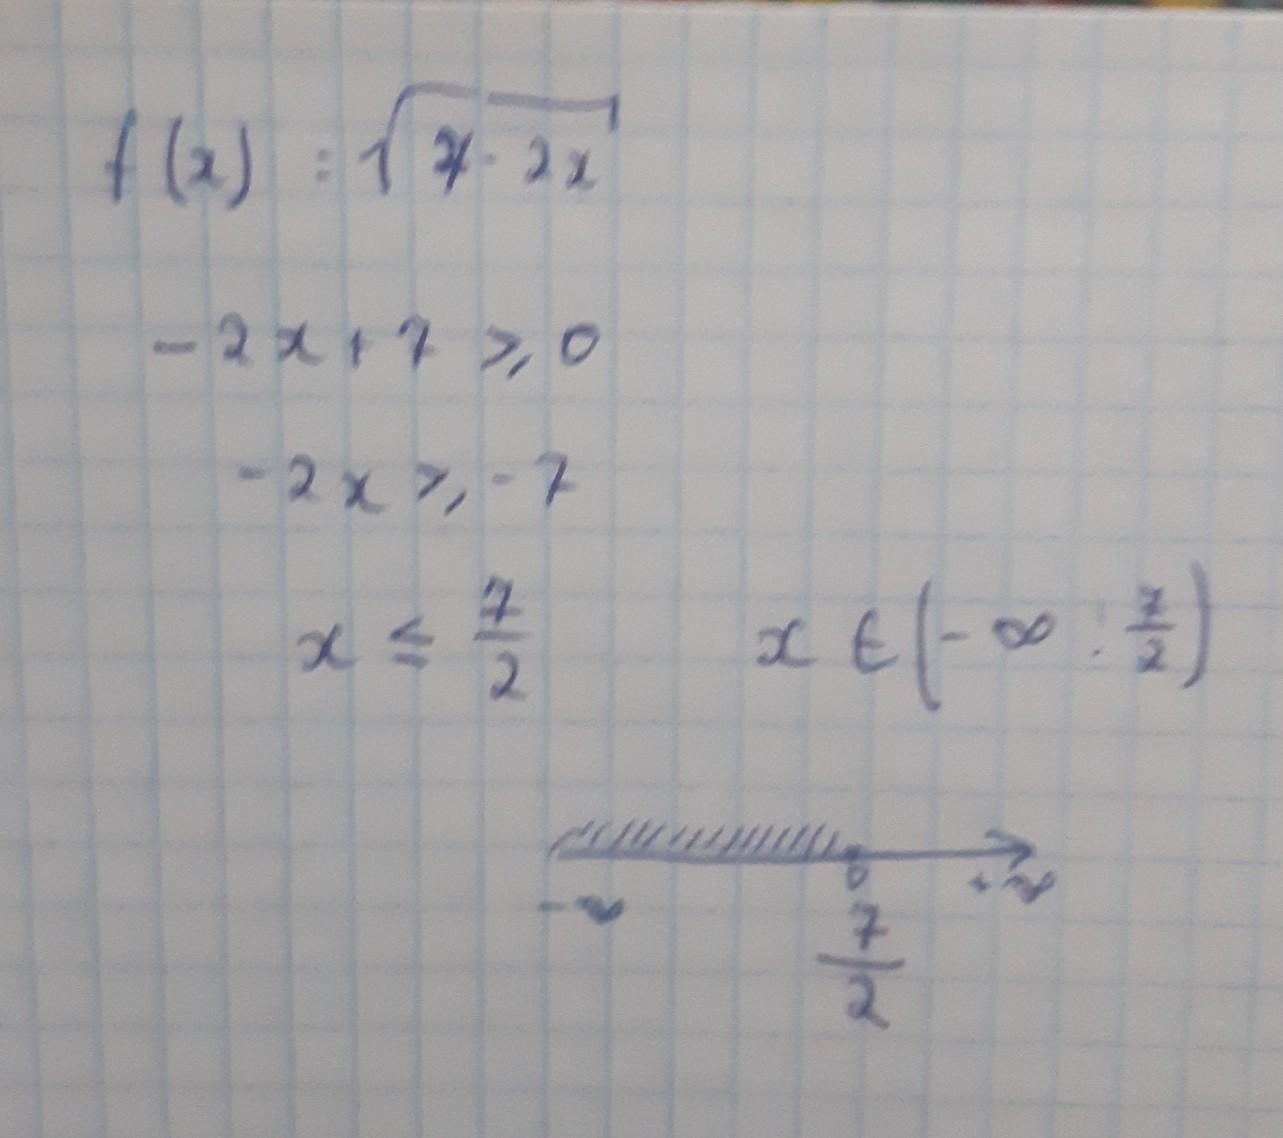 f(x) = √(7-2x)
-2x+7 ⩾ 0
-2x ⩾ -7
x ≤ 7/2 x ∈ (-∞ : 7/2)
-∞ 0 +∞
7/2